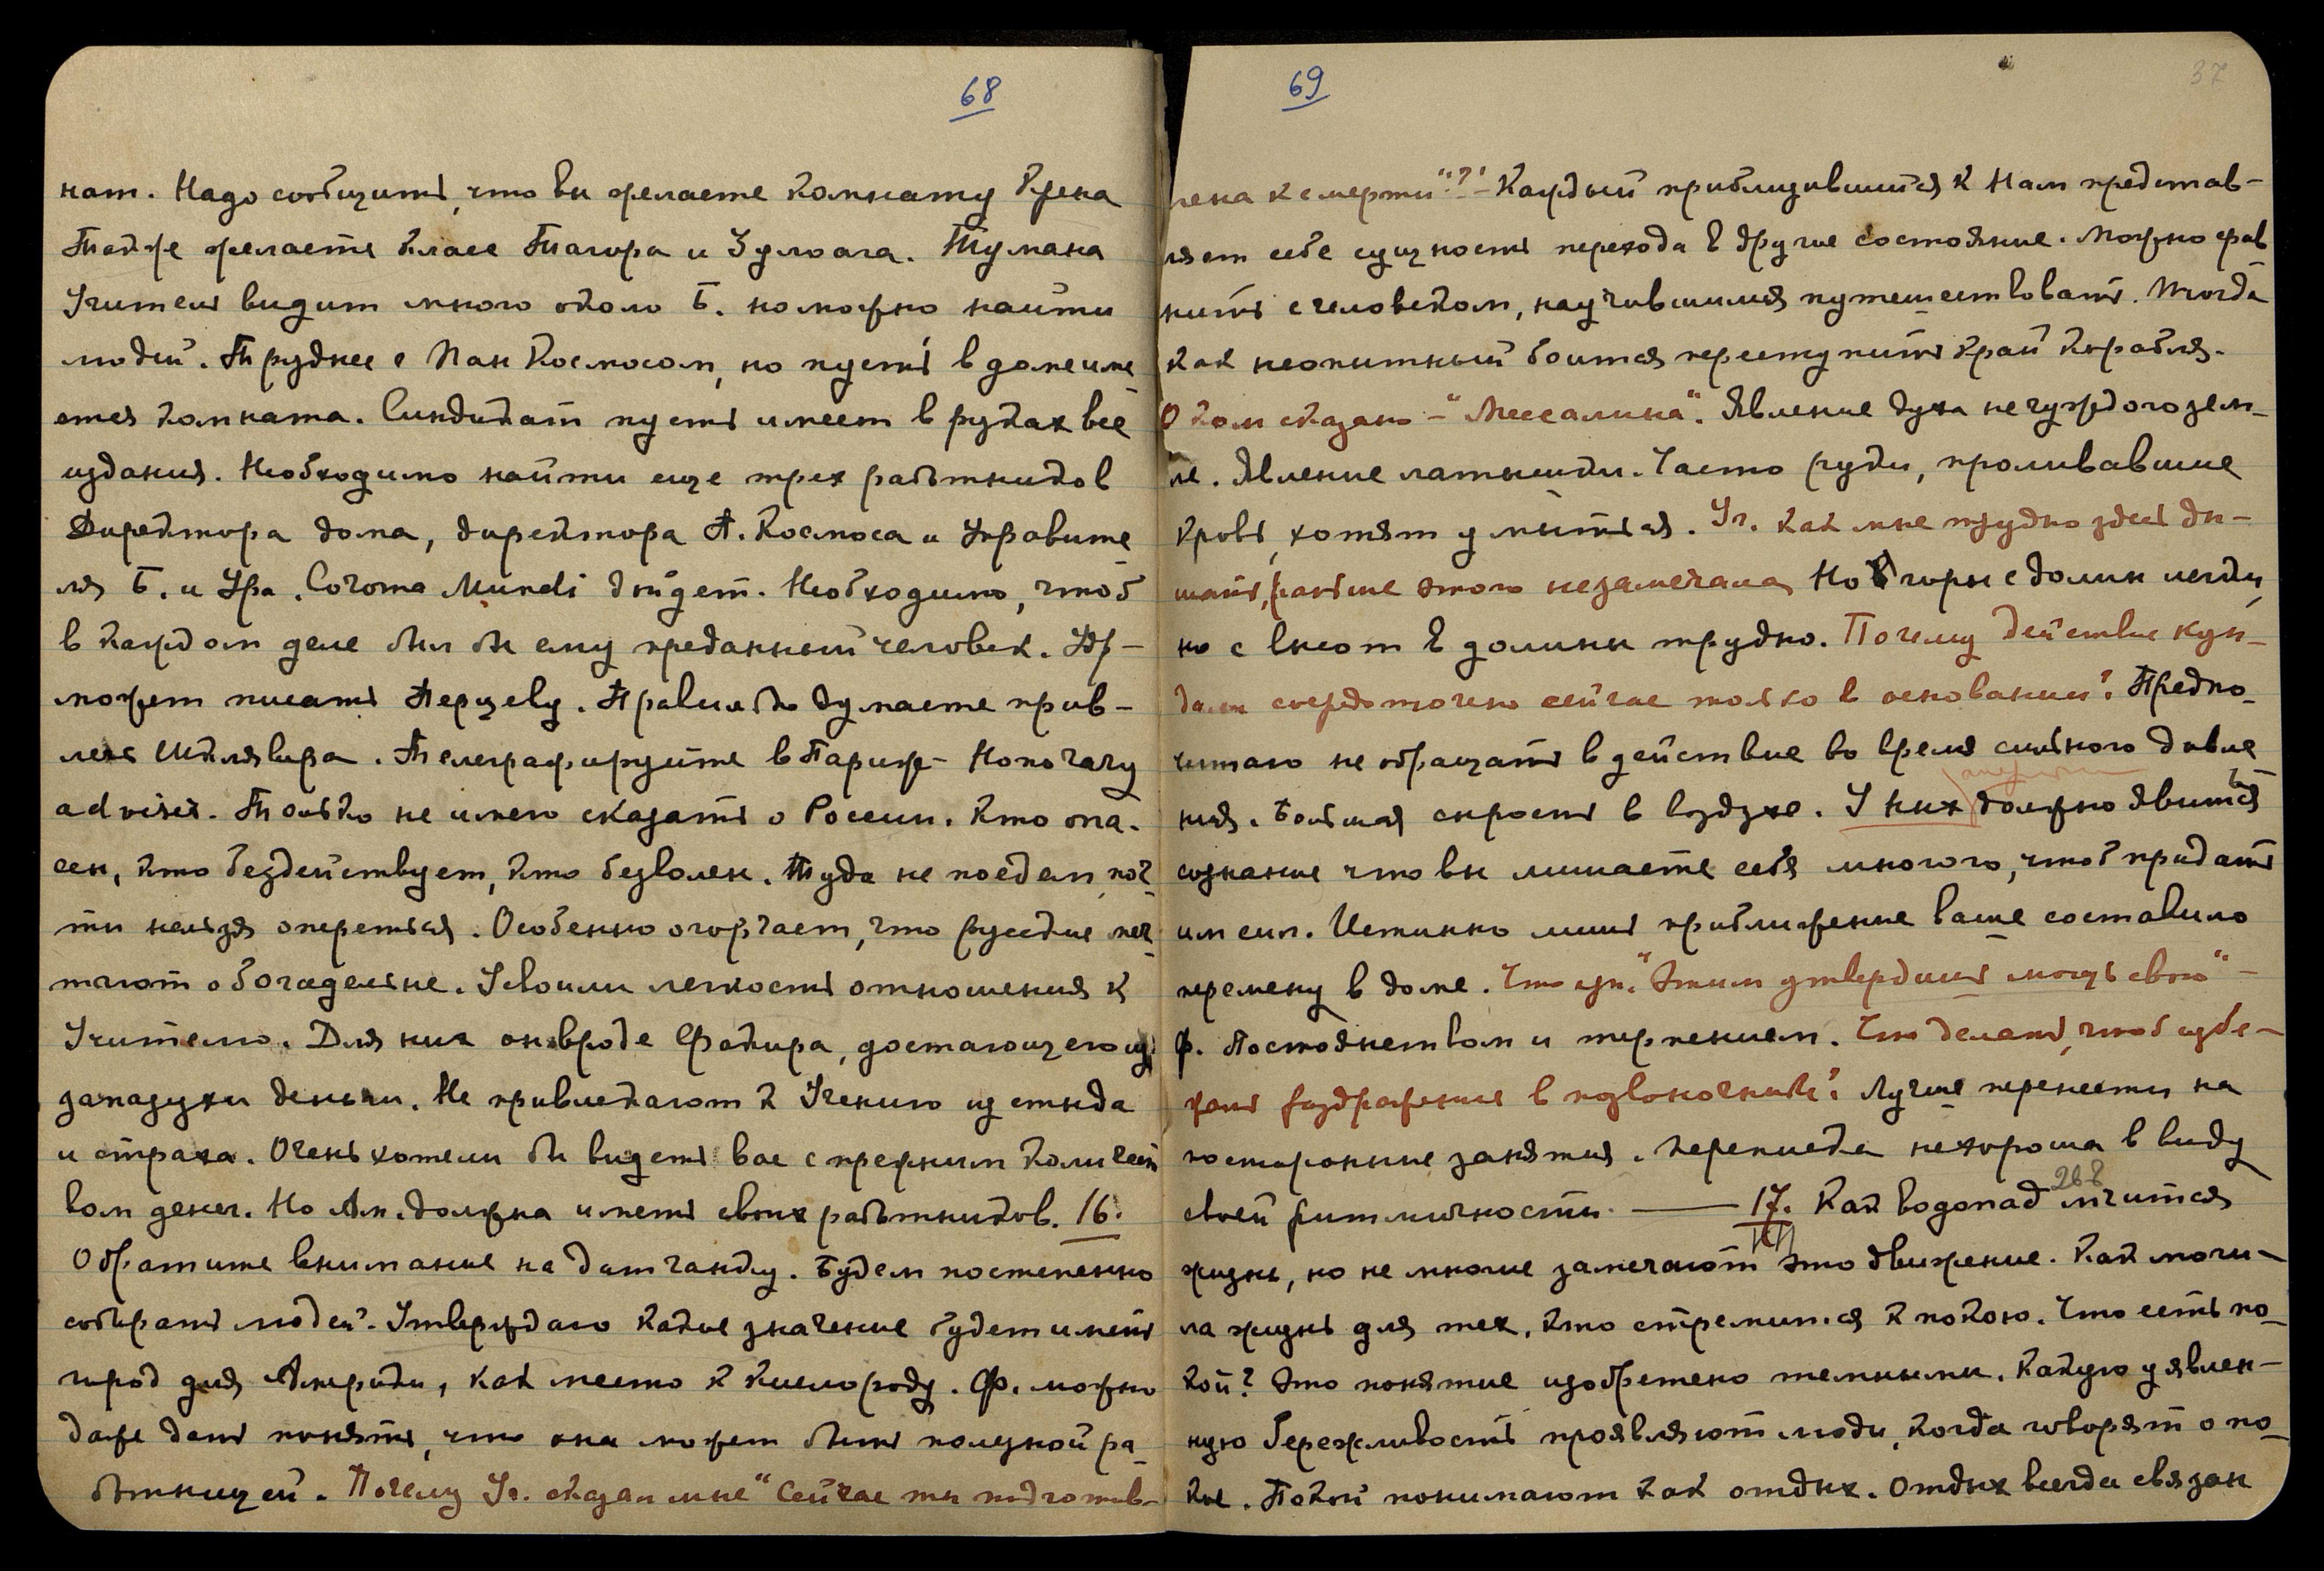 68
нат. Надо сообщить, что вы желаете комнату Крена
Также желаете класс Тагора и Зулоага. Тумана
Учитель видит много около Б. но можно найти
людей. Труднее с Пан Космосом, но пусть в доме име
ется комната. Синдикат пусть имеет в руках все
издания. Необходимо найти еще трех работников
Директора дома, директора П. Космоса и Управите
ля Б. и Ура. Corona Mundi дойдет. Необходимо, чтоб
в каждом деле был бы ему преданный человек. Ур-
может писать Перцеву. Правильно думаете прив-
лечь Шклявера. Телеграфируйте в Париж - Honorary
adviser. Только не имею сказать о России. Кто опа-
сен, кто бездействует, кто безволен. Туда не поедем поч
ти нельзя опереться. Особенно огорчает, что русские меч
тают о богадельне. Усвоили легкость отношения к
Учителю. Для них он вроде Факира, достающего из
запазухи деньги. Не привлекают к Учению из стыда
и страха. Очень хотели бы видеть вас с прежним количест
вом денег. Но Ам. должна иметь своих работников. 16.
Обратите внимание на датчанку. Будем постепенно
собирать людей. Утверждаю какое значение будет иметь
город для Америки, как место к кислороду. Ф. можно
даже дать понять, что она может быть полезной ра-
ботницей. Почему Уч. сказал мне "Сейчас ты подготов-
69
37
лена к смерти"?! - Каждый приблизившийся к Нам представ-
ляет себе сущность перехода в другие состояние. Можно срав
нить с человеком, научившимся путешествовать. Тогда
как неопытный боится переступить край корабля.
О ком сказано - "Мессалина". Явление духа нечуждого зем-
ле. Явление латышки. Часто руки, проливавшие
кровь, хотят умыться. Уч. как мне трудно здесь ды-
шать, раньше этого незамечала Но в горы с долин легки,
но с высот в долины трудно. Почему действие кун-
дали сосредоточено сейчас только в основании? Предпо-
читаю не обращать в действие во время сильного давле
ния. Большая сырость в воздухе. У них должно явиться
сознание что вы лишаете себя многого, чтоб придать
им сил. Истинно лишь приближение ваше составило
перемену в доме. "Этим утвердишь мощь свою" -
Ф. Постоянством и терпением. Что делать, чтоб избе-
жать раздражения в позвоночнике? Лучше перенести на
посторонние занятия. Переписка нехороша в виду
своей ритмичности. — 17. Как водопад мчится
268
жизнь, но не многие замечают это движение. Как моги-
ла жизнь для тех, кто стремится к покою. Что есть по-
кой? Это понятие изобретено темными. Какую уявлен-
ную бережливость проявляют люди, когда говорят о по-
кое. Покой понимают как отдых. Отдых всегда связан